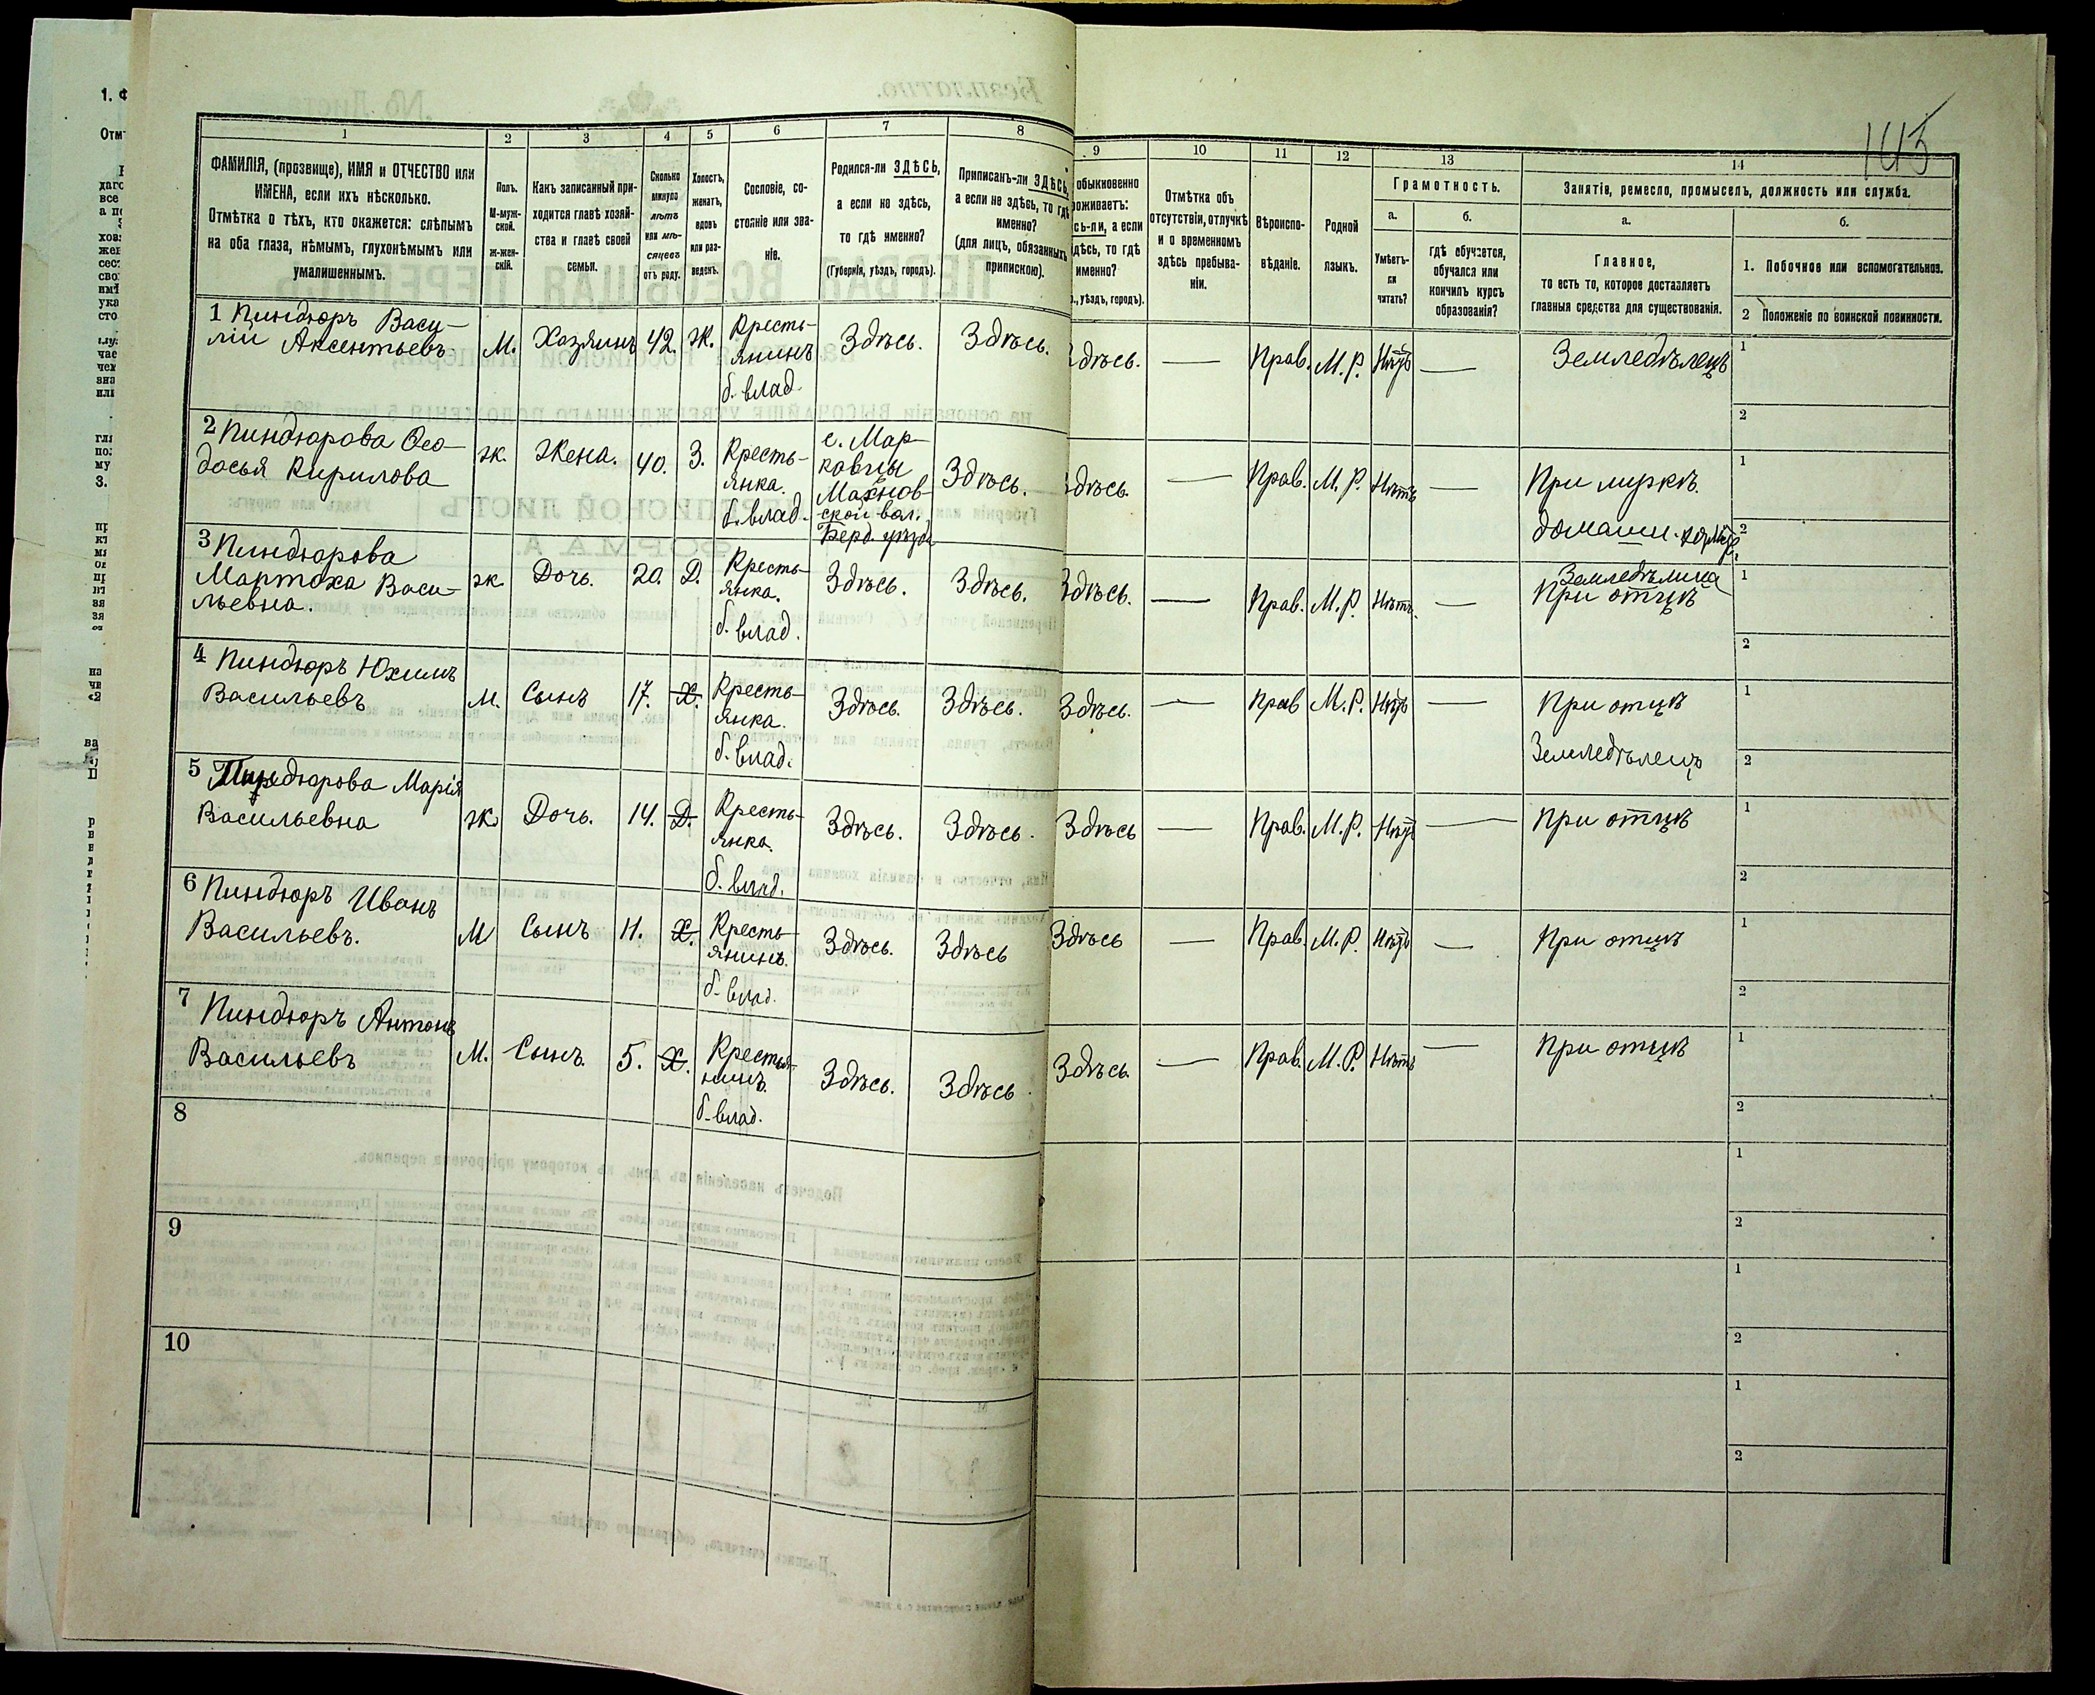 145
1 2 3 4 5 6 7 8 9 10 11 12 13 14
ФАМИЛІЯ, (прозвище), ИМЯ и ОТЧЕСТВО или
ИМЕНА, если ихъ нѣсколько.
Отмѣтка о тѣхъ, кто окажется: слѣпымъ
на оба глаза, нѣмымъ, глухонѣмымъ или
умалишеннымъ.
Полъ.
М-муж-
ской.
ж-жен-
скій.
Какъ записанный при-
ходится главѣ хозяй-
ства и главѣ своей
семьи.
Сколько
минуло
лѣтъ
или мѣ-
сяцевъ
отъ роду.
Холостъ,
женатъ,
вдовъ
или раз-
веденъ.
Сословіе, со-
стояніе или зва-
ніе.
Родился-ли ЗДѢСЬ,
а если не здѣсь,
то гдѣ именно?
(Губернія, уѣздъ, городъ).
Приписанъ-ли ЗДѢСЬ,
а если не здѣсь, то гдѣ
именно?
(для лицъ, обязанныхъ
припискою).
обыкновенно
роживаетъ:
сь-ли, а если
дѣсь, то гдѣ
именно?
., уѣздъ, городъ).
Отмѣтка объ
отсутствіи, отлучкѣ
и о временномъ
здѣсь пребыва-
ніи.
Вѣроиспо-
вѣданіе.
Родной
языкъ.
Грамотность.
а.
Умѣетъ-
ли
читать?
б.
гдѣ обучается,
обучался или
кончилъ курсъ
образованія?
Занятіе, ремесло, промыселъ, должность или служба.
а.
Главное,
то есть то, которое доставляетъ
главныя средства для существованія.
б.
1. Побочное или вспомогательное.
2 Положеніе по воинской повинности.
1 Пиндюръ Васи-
лій Аксентьевъ М. Хозяинъ 42. Ж. Кресть-
янинъ
б. влад. Здѣсь. Здѣсь. Здѣсь. — Прав. М. Р. Нѣтъ — Земледѣлецъ 1
2
2 Пиндюрова Ѳео-
досья Кирилова ж. Жена. 40. З. Кресть-
янка.
б. влад. с. Мар-
ковцы
Махнов-
ской вол.
Берд. уѣзда Здѣсь. Здѣсь. — Прав. М. Р. Нѣтъ — При мужѣ.
домашн. 1
2
3 Пиндюрова
Мартоха Васи-
льевна. ж Дочь. 20. Д. Кресть-
янка.
б. влад. Здѣсь. Здѣсь. Здѣсь. — Прав. М. Р. Нѣтъ. — При отцѣ 1
2
4 Пиндюръ Юхимъ
Васильевъ М. Сынъ 17. Х. Кресть-
янка.
б. влад. Здѣсь. Здѣсь. Здѣсь. — Прав М. Р. Нѣтъ — При отцѣ
Земледѣлецъ 1
2
5 Пиндюрова Марія
Васильевна ж. Дочь. 14. Д. Кресть-
янка.
б. влад. Здѣсь. Здѣсь. Здѣсь — Прав. М. Р. Нѣтъ — При отцѣ 1
2
6 Пиндюръ Иванъ
Васильевъ. М Сынъ 11. Х. Кресть-
янинъ.
б. влад. Здѣсь. Здѣсь Здѣсь — Прав. М. Р. Нѣтъ — При отцѣ 1
2
7 Пиндюръ Антонъ
Васильевъ М. Сынъ. 5. Х. Крестья-
нинъ.
б. влад. Здѣсь. Здѣсь. Здѣсь. — Прав. М. Р. Нѣтъ — При отцѣ 1
2
8 1
2
9 1
2
10 1
2